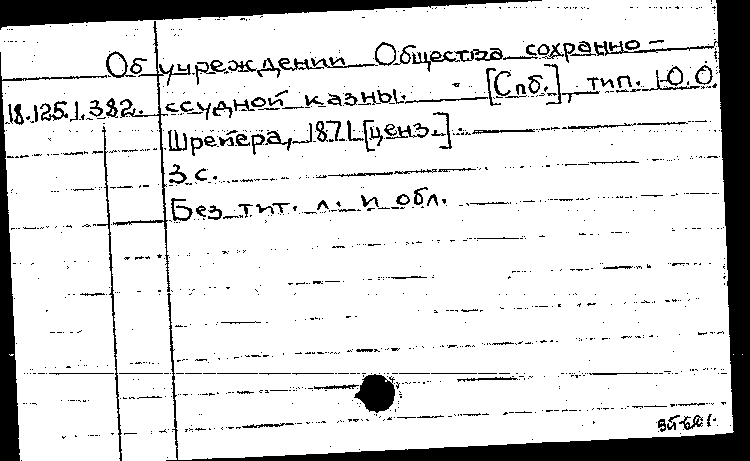 Об учреждении Общества сохранно-
18.125.1.382. ссудной казны. - [Спб.], тип. Ю.О.
Шрейера, 1871 [ценз.].
3 с.
Без тит. л. и обл.